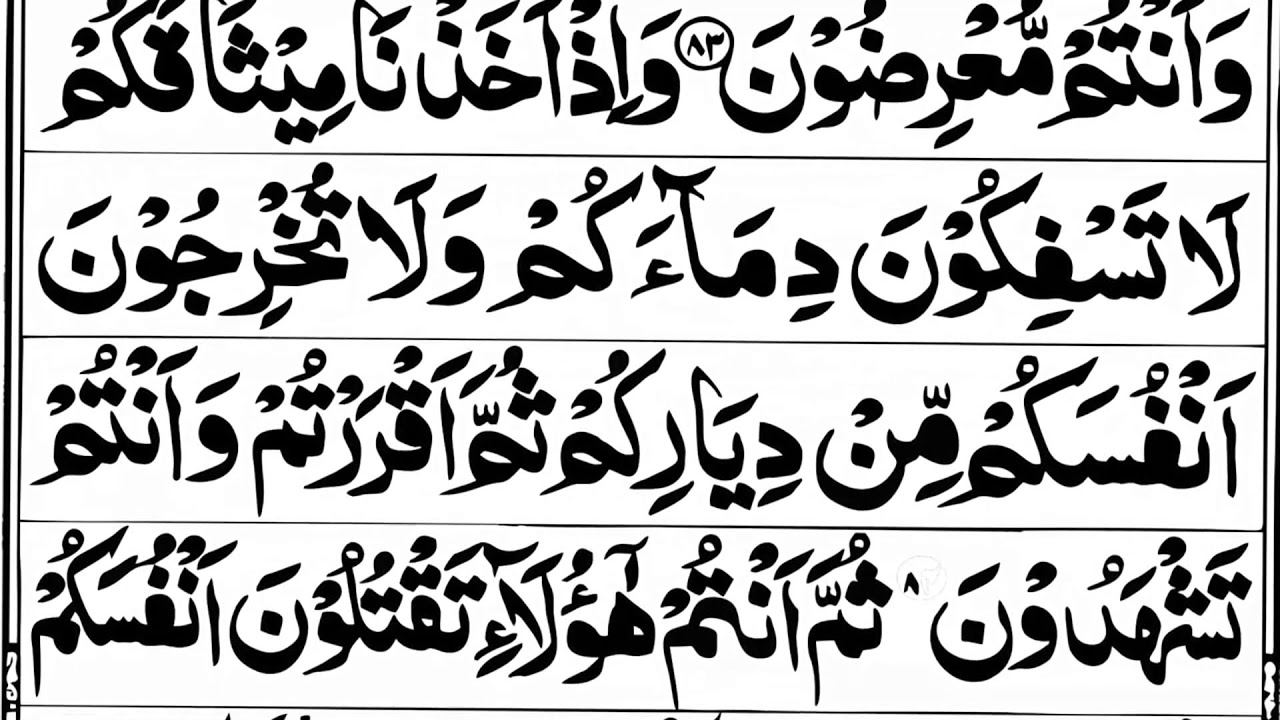 وَاَنْتُمْ مُّعْرِضُوْنَ ﴿۸۳﴾ وَاِذْ اَخَذْنَا مِيْثَاقَكُمْ
لَا تَسْفِكُوْنَ دِمَآءَكُمْ وَلَا تُخْرِجُوْنَ
اَنْفُسَكُمْ مِّنْ دِيَارِكُمْ ثُمَّ اَقْرَرْتُمْ وَاَنْتُمْ
تَشْهَدُوْنَ ۸ ثُمَّ اَنْتُمْ هٰٓؤُلَآءِ تَقْتُلُوْنَ اَنْفُسَكُمْ